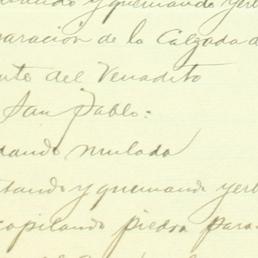 y quemando yer
aración de la Calzada d
nte del Venadito
San Pablo:
dando mulada
tando y quemando yer
copilando piedra para